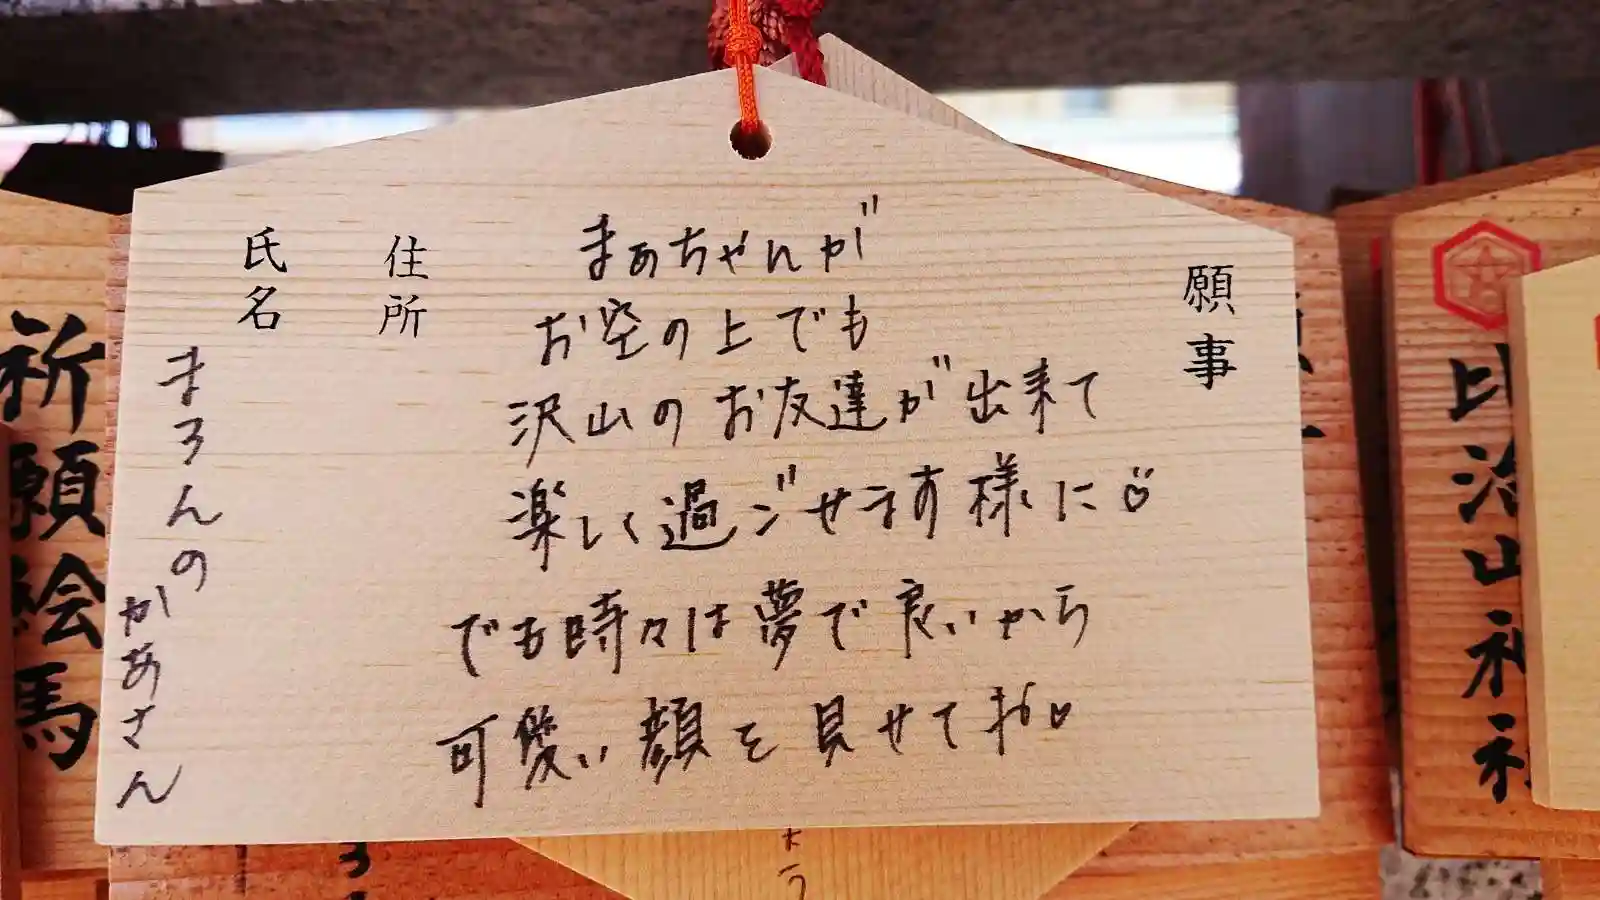 願事
まぁちゃんが
お空の上でも
沢山のお友達が出来て
楽しく過ごせます様に♡
でも時々は夢で良いから
可愛い顔を見せてね♡
住所
氏名
まろんの
かあさん
祈願絵馬
比治山神社